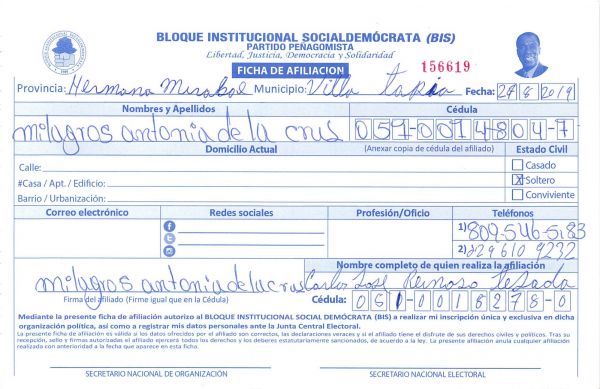 BLOQUE INSTITUCIONAL SOCIALDEMÓCRATA (BIS)
PARTIDO PEÑAGOMISTA
Libertad, Justicia, Democracia y Solidaridad
FICHA DE AFILIACION
156619
Provincia: Hermana Mirabal Municipio: Villa tapia Fecha: 27/8/2019
Nombres y Apellidos Cédula
milagros antonia de la crus 059-0014804-7
Domicilio Actual (Anexar copia de cédula del afiliado) Estado Civil
Calle: Casado
#Casa / Apt. / Edificio: X Soltero
Barrio / Urbanización: Conviviente
Correo electrónico Redes sociales Profesión/Oficio Teléfonos
1) 809-546-5183
2) 829 610 9232
Nombre completo de quien realiza la afiliación
milagros antonia de la crus Carlos José Reinoso
Firma del afiliado (Firme igual que en la Cédula) Cédula: 051-0018278-0
Mediante la presente ficha de afiliación autorizo al BLOQUE INSTITUCIONAL SOCIAL DEMÓCRATA (BIS) a realizar mi inscripción única y exclusiva en dicha
organización política, así como a registrar mis datos personales ante la Junta Central Electoral.
La presente ficha de afiliación es válida si los datos ofrecidos por el afiliado son correctos, las declaraciones veraces y si el afiliado tiene el disfrute de sus derechos civiles y políticos. Tras su
recepción, sello y firmas autorizadas el afiliado ejercerá todos los derechos y los deberes estatutariamente sancionados, de acuerdo a la ley. La presente afiliación anula cualquier afiliación
realizada con anterioridad a la fecha que aparece en esta ficha.
SECRETARIO NACIONAL DE ORGANIZACIÓN SECRETARIO NACIONAL ELECTORAL